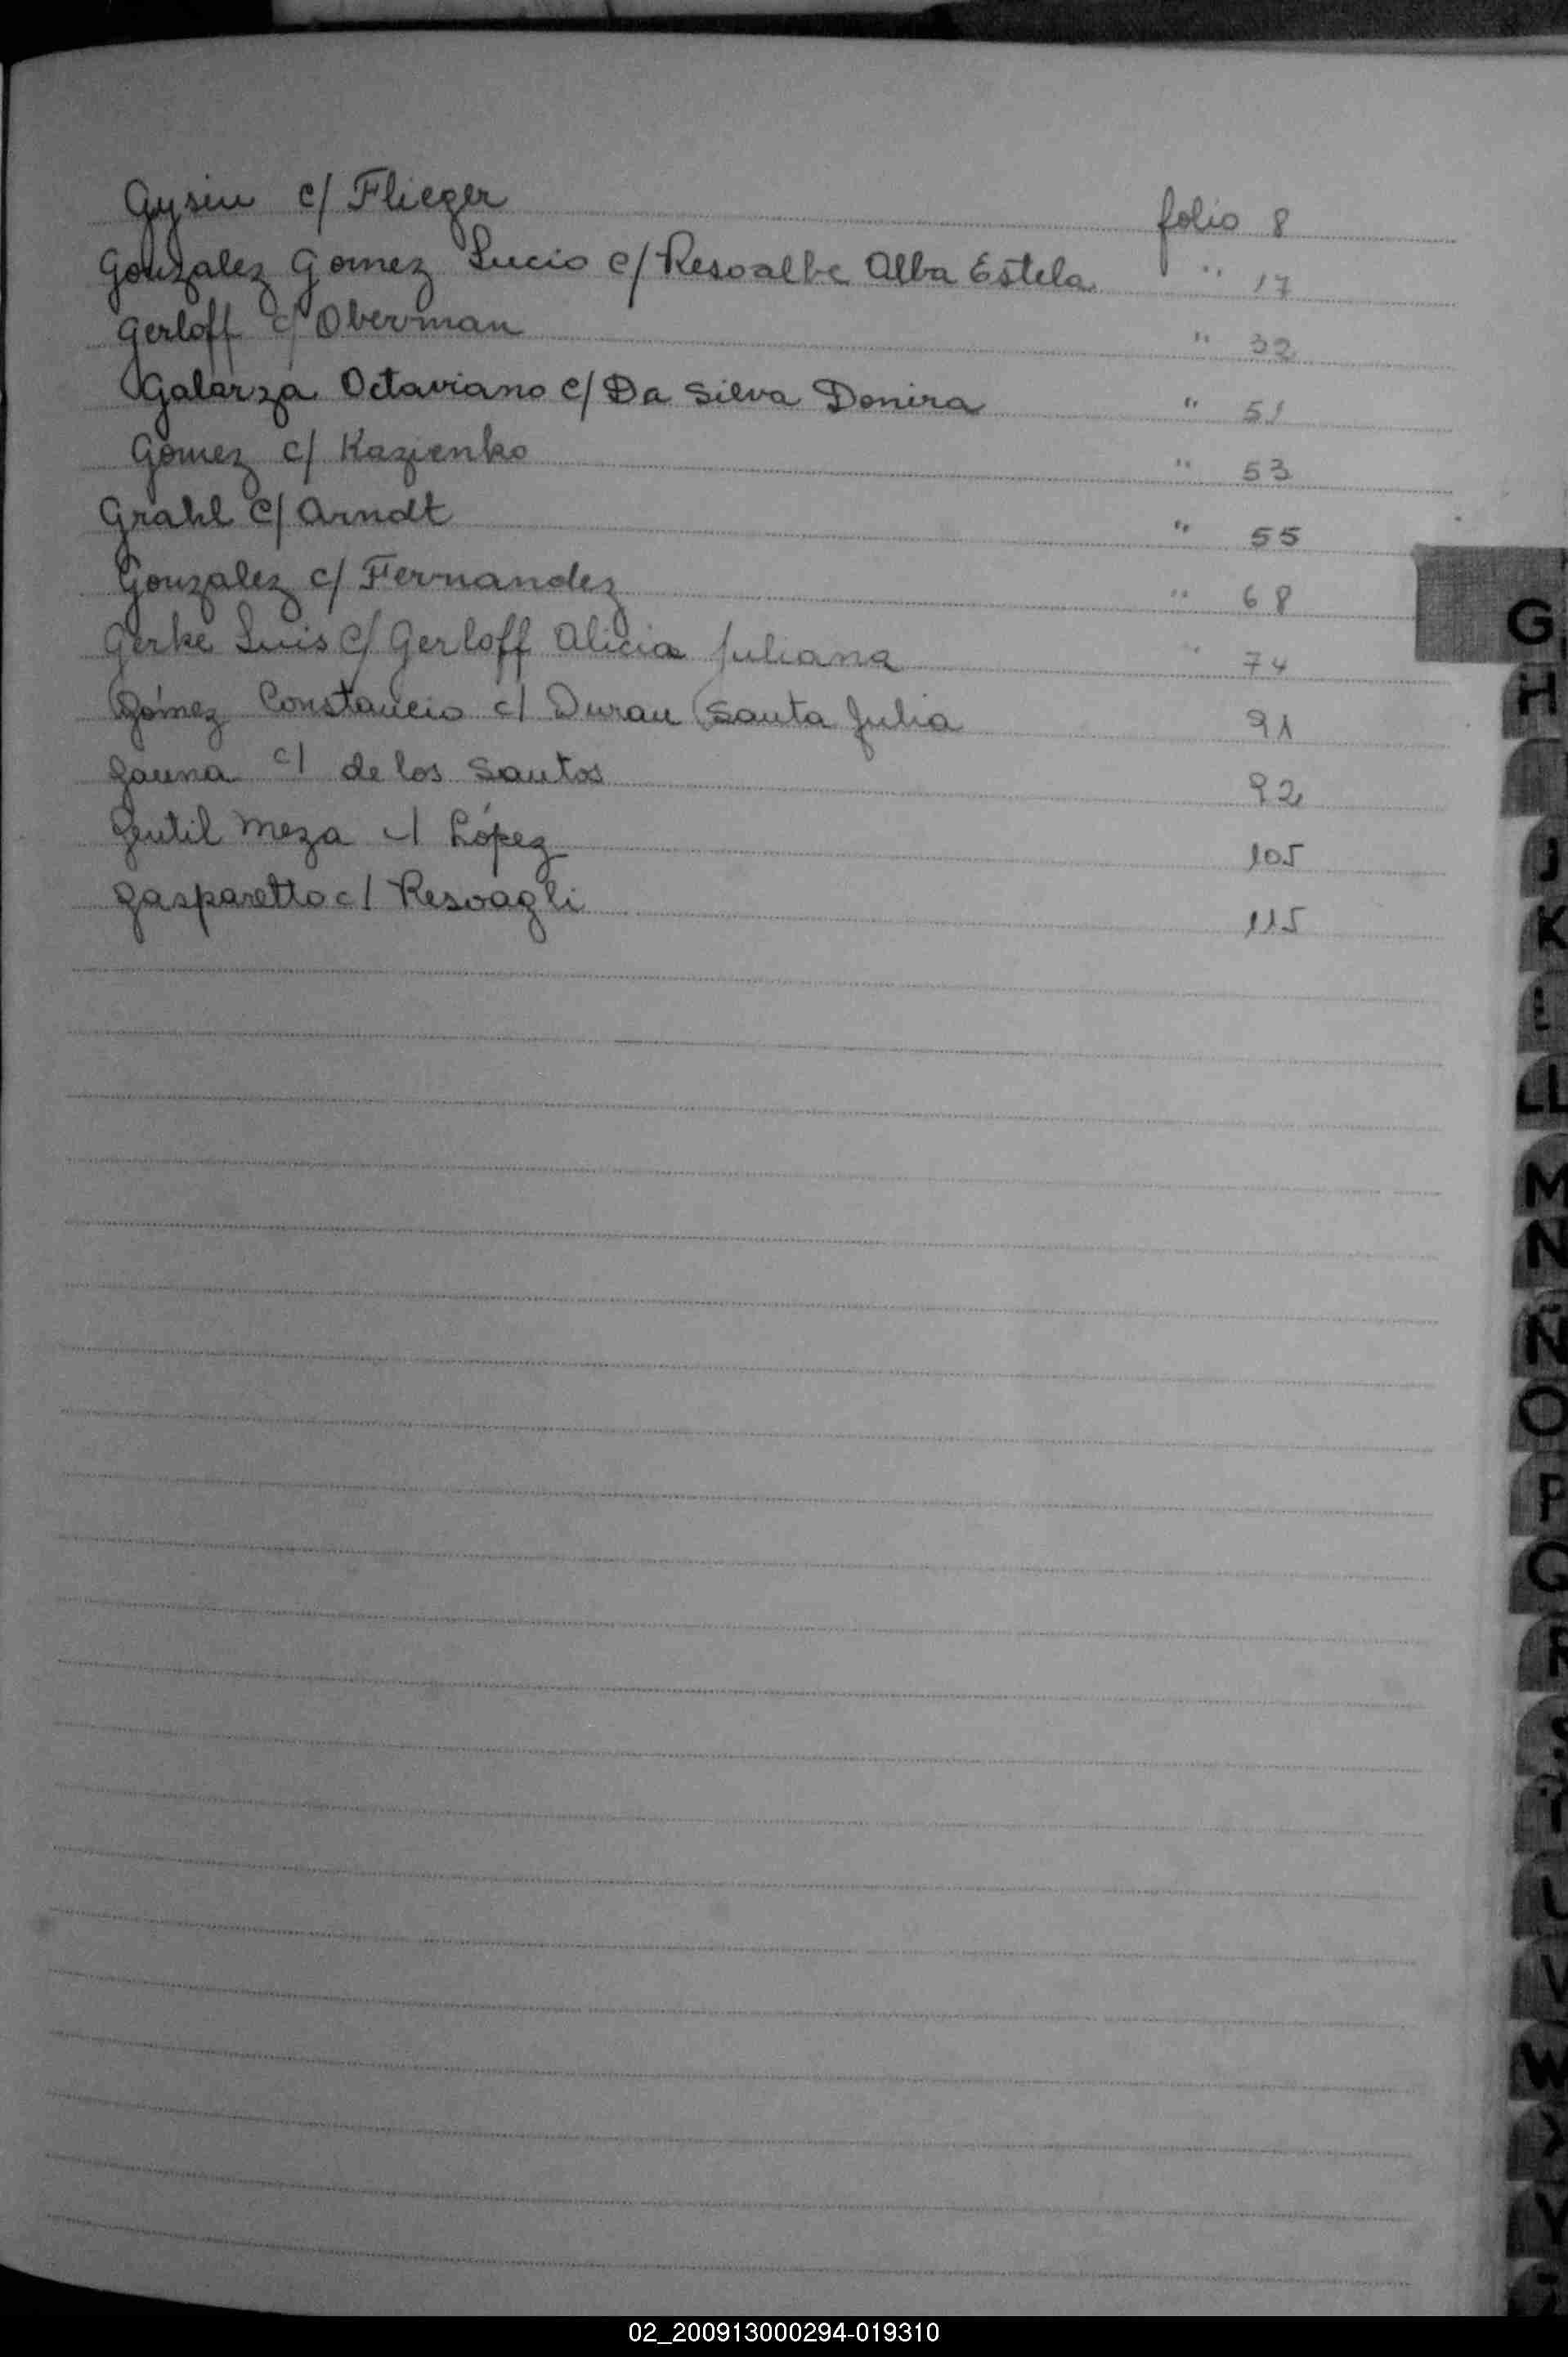 Gysin c/ Flieger folio 8
Gonzalez Gomez Lucio c/ Resoalbe Alba Estela " 17
Gerloff c/ Oberman " 32
Galarza Octaviano c/ Da Silva Donira " 51
Gomez c/ Kazienko " 53
Grahl c/ Arndt " 55
Gonzalez c/ Fernandez " 68
Gerke Luis c/ Gerloff Alicia Juliana " 74
Gómez Constancio c/ Duran Santa Julia 91
Gauna c/ de los Santos 92
Gentil Meza c/ López 105
Gasparetto c/ Resoagli 115
G
H
J
K
L
LL
M
N
Ñ
O
P
Q
R
S
T
U
V
W
X
Y
02_200913000294-019310